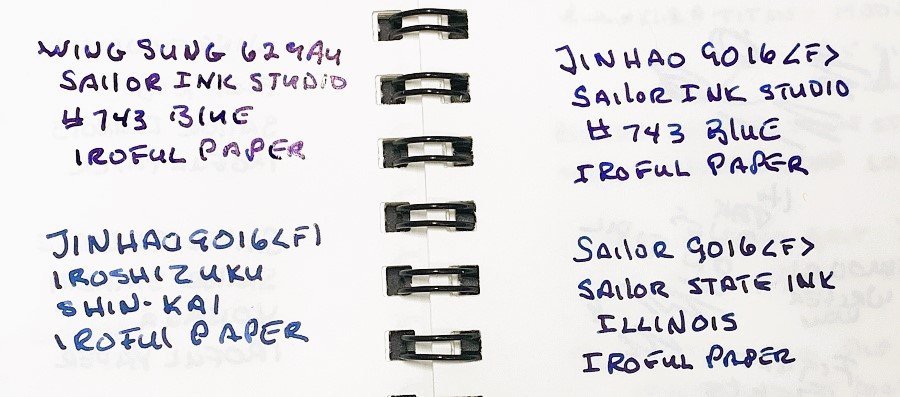 WING SUNG 629AU
SAILOR INK STUDIO
# 743 BLUE
IROFUL PAPER
JINHAO 9016<F)
IROSHIZUKU
SHIN-KAI
IROFUL PAPER
JINHAO 9016<F>
SAILOR INK STUDIO
# 743 BLUE
IROFUL PAPER
SAILOR 9016<F>
SAILOR STATE INK
ILLINOIS
IROFUL PAPER